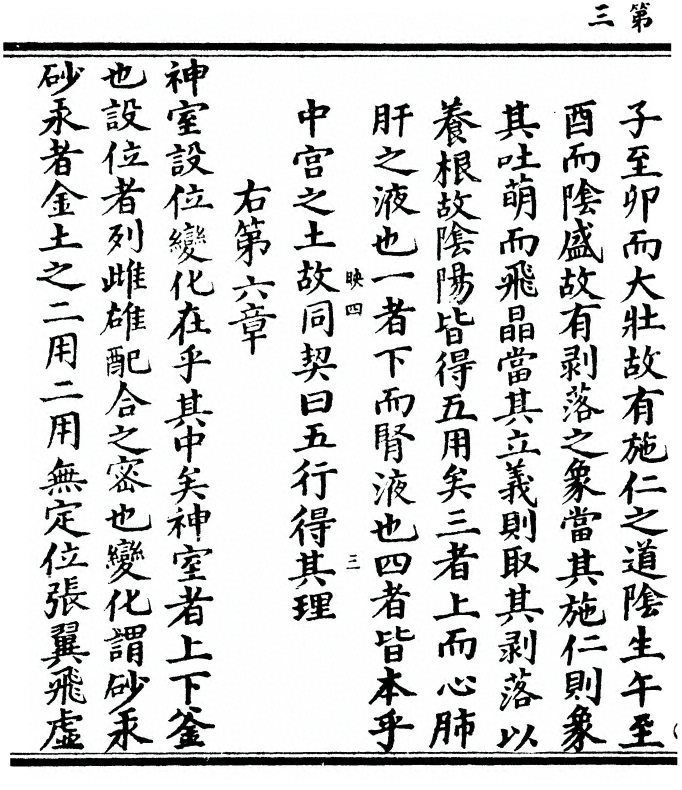 第三
子至卯而大壯故有施仁之道陰生午至
酉而陰盛故有剥落之象當其施仁則象
其吐萌而飛晶當其立義則取其剥落以
養根故陰陽皆得五用矣三者上而心肺
肝之液也一者下而腎液也四者皆本乎
映四 三
中宫之土故同契曰五行得其理
右第六章
神室設位變化在乎其中矣神室者上下釜
也設位者列雌雄配合之密也變化謂砂汞
砂汞者金土之二用二用無定位張翼飛虛